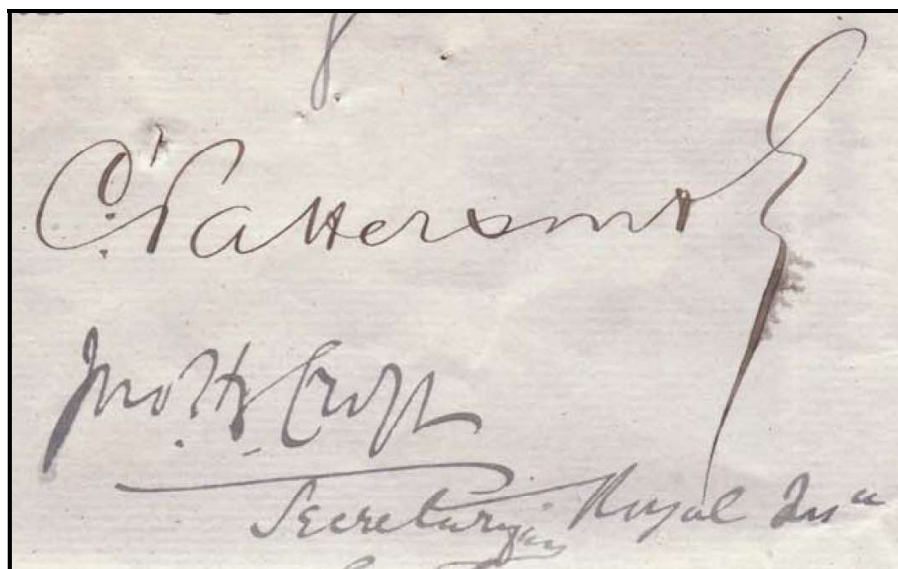 C. Pattersmith
Jno. Hy. Croft
Secretary Royal Insce